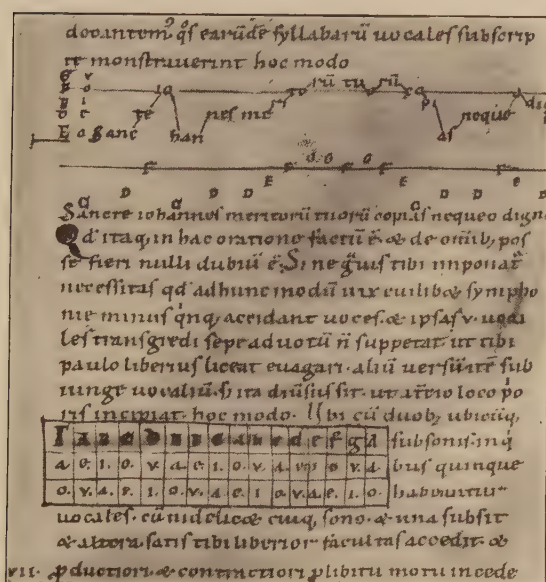 q̊s earūdē syllabarū uocales subscrip
te monstruuerint hoc modo
Sanc te io han nes me ri to rū tu o rū co pi as neque o dig
Sancte iohannes meritorū tuorū copias nequeo digne
Qd itaq; in hac oratione factū ē. & de omīb; pos
se fieri nulli dubiū ē. Si ne ꝗuis tibi imponat̄
necessitas qđ adhunc modū uix cuilib& sympho
nie minus qnq; accidant uoces. & ipsas v. uoca
les transgredi sepe ad uotū ñ suppetat. ut tibi
paulo liberius liceat euagari. aliū uersū itē sub
iunge uocaliū. s; ita diūsus sit. ut a t̄tio loco p̄o
ris incipiat. hoc modo. Ubi cū duob; ubicūq;
Γ A B C D E F G a b c d e f g a subsonis. in q̇
a. e. i. o. v. a. e. i. o. v. a. e. i. o. v. a. bus quinque
o. v. a. e. i. o. v. a. e. i. o. v. a. e. i. o. habeuntur
uocales. cū uidelic& cuiq; sono. & una subsit
& altera. satis tibi liberior facultas accedit. &
vii. ꝓductiori. & contractiori ꝓ libitu motu incede